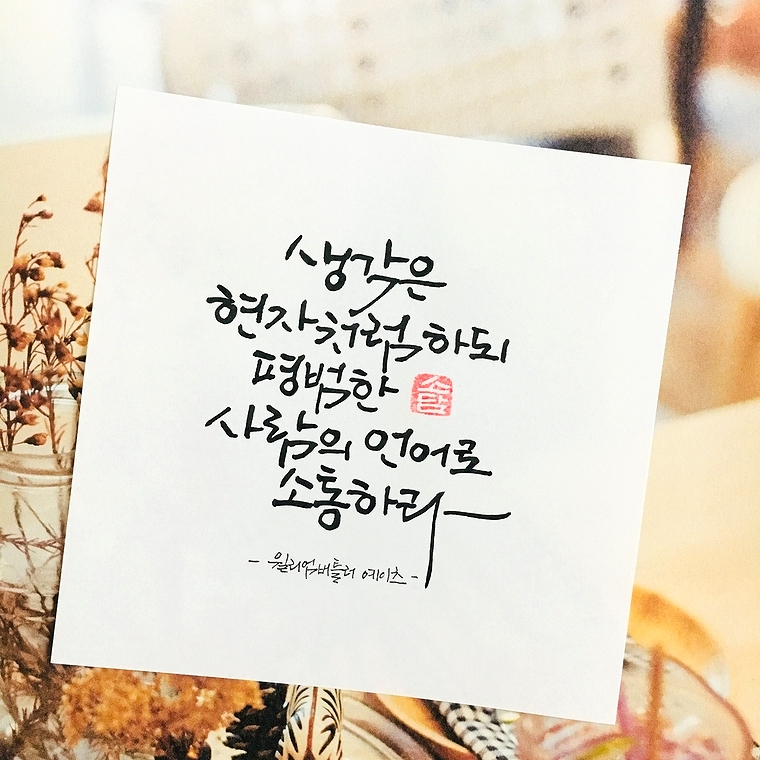 생각은
현자처럼 하되
평범한
소담
사람의 언어로
소통하라
- 윌리엄 버틀러 예이츠 -